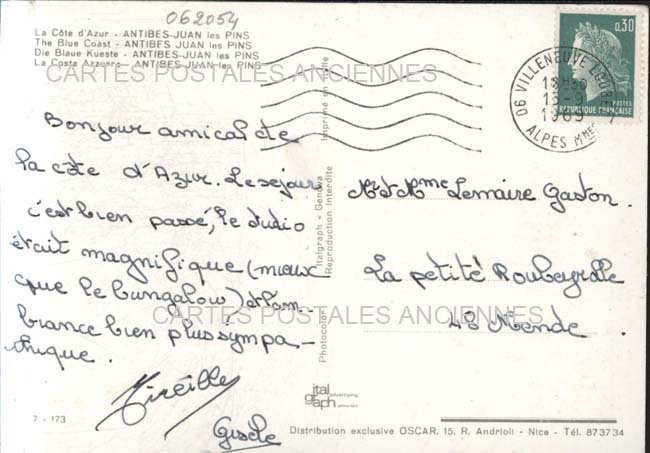 062054
La Côte d'Azur - ANTIBES-JUAN les PINS
The Blue Coast - ANTIBES JUAN les PINS
Die Blaue Kueste - ANTIBES-JUAN les PINS
La Costa Azzurra - ANTIBES-JUAN les PINS
CARTES POSTALES ANCIENNES
0,30
POSTES
RÉPUBLIQUE FRANÇAISE
06 VILLENEUVE LOUBET
1969
ALPES Mmes
Bonjour amical de
la côte d'Azur. Le séjour
c'est bien passé, le studio
était magnifique (mieux
que le bungalow) et l'am-
biance bien plus sympa-
thique.
Mireille
Gisèle
Mr et Mme Lemaire Gaston.
La petite Roubeyrolle
48 Mende.
CARTES POSTALES ANCIENNES
Imprimé en Italie
Italgraph - Genova
Reproduction Interdite
Photocolor
ital
graph
advertising
7 - 173
Distribution exclusive OSCAR, 15, R. Andrioli - Nice - Tél. 873734